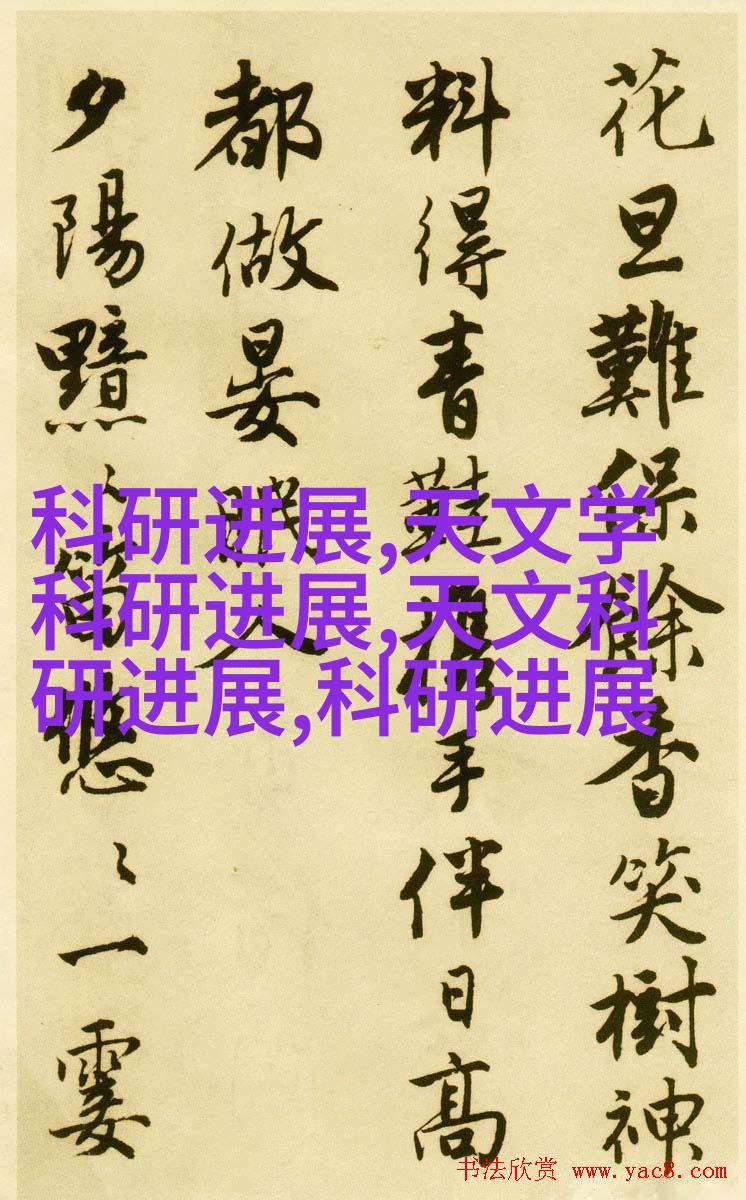 花旦難保餘香笑樹神
料得青鞋携手伴日高
都做晏眠人
夕陽黯〻笛悠〻一霎
科研进展,天文学
科研进展,天文科
研进展,科研进展
书法欣赏 www.yac8.com